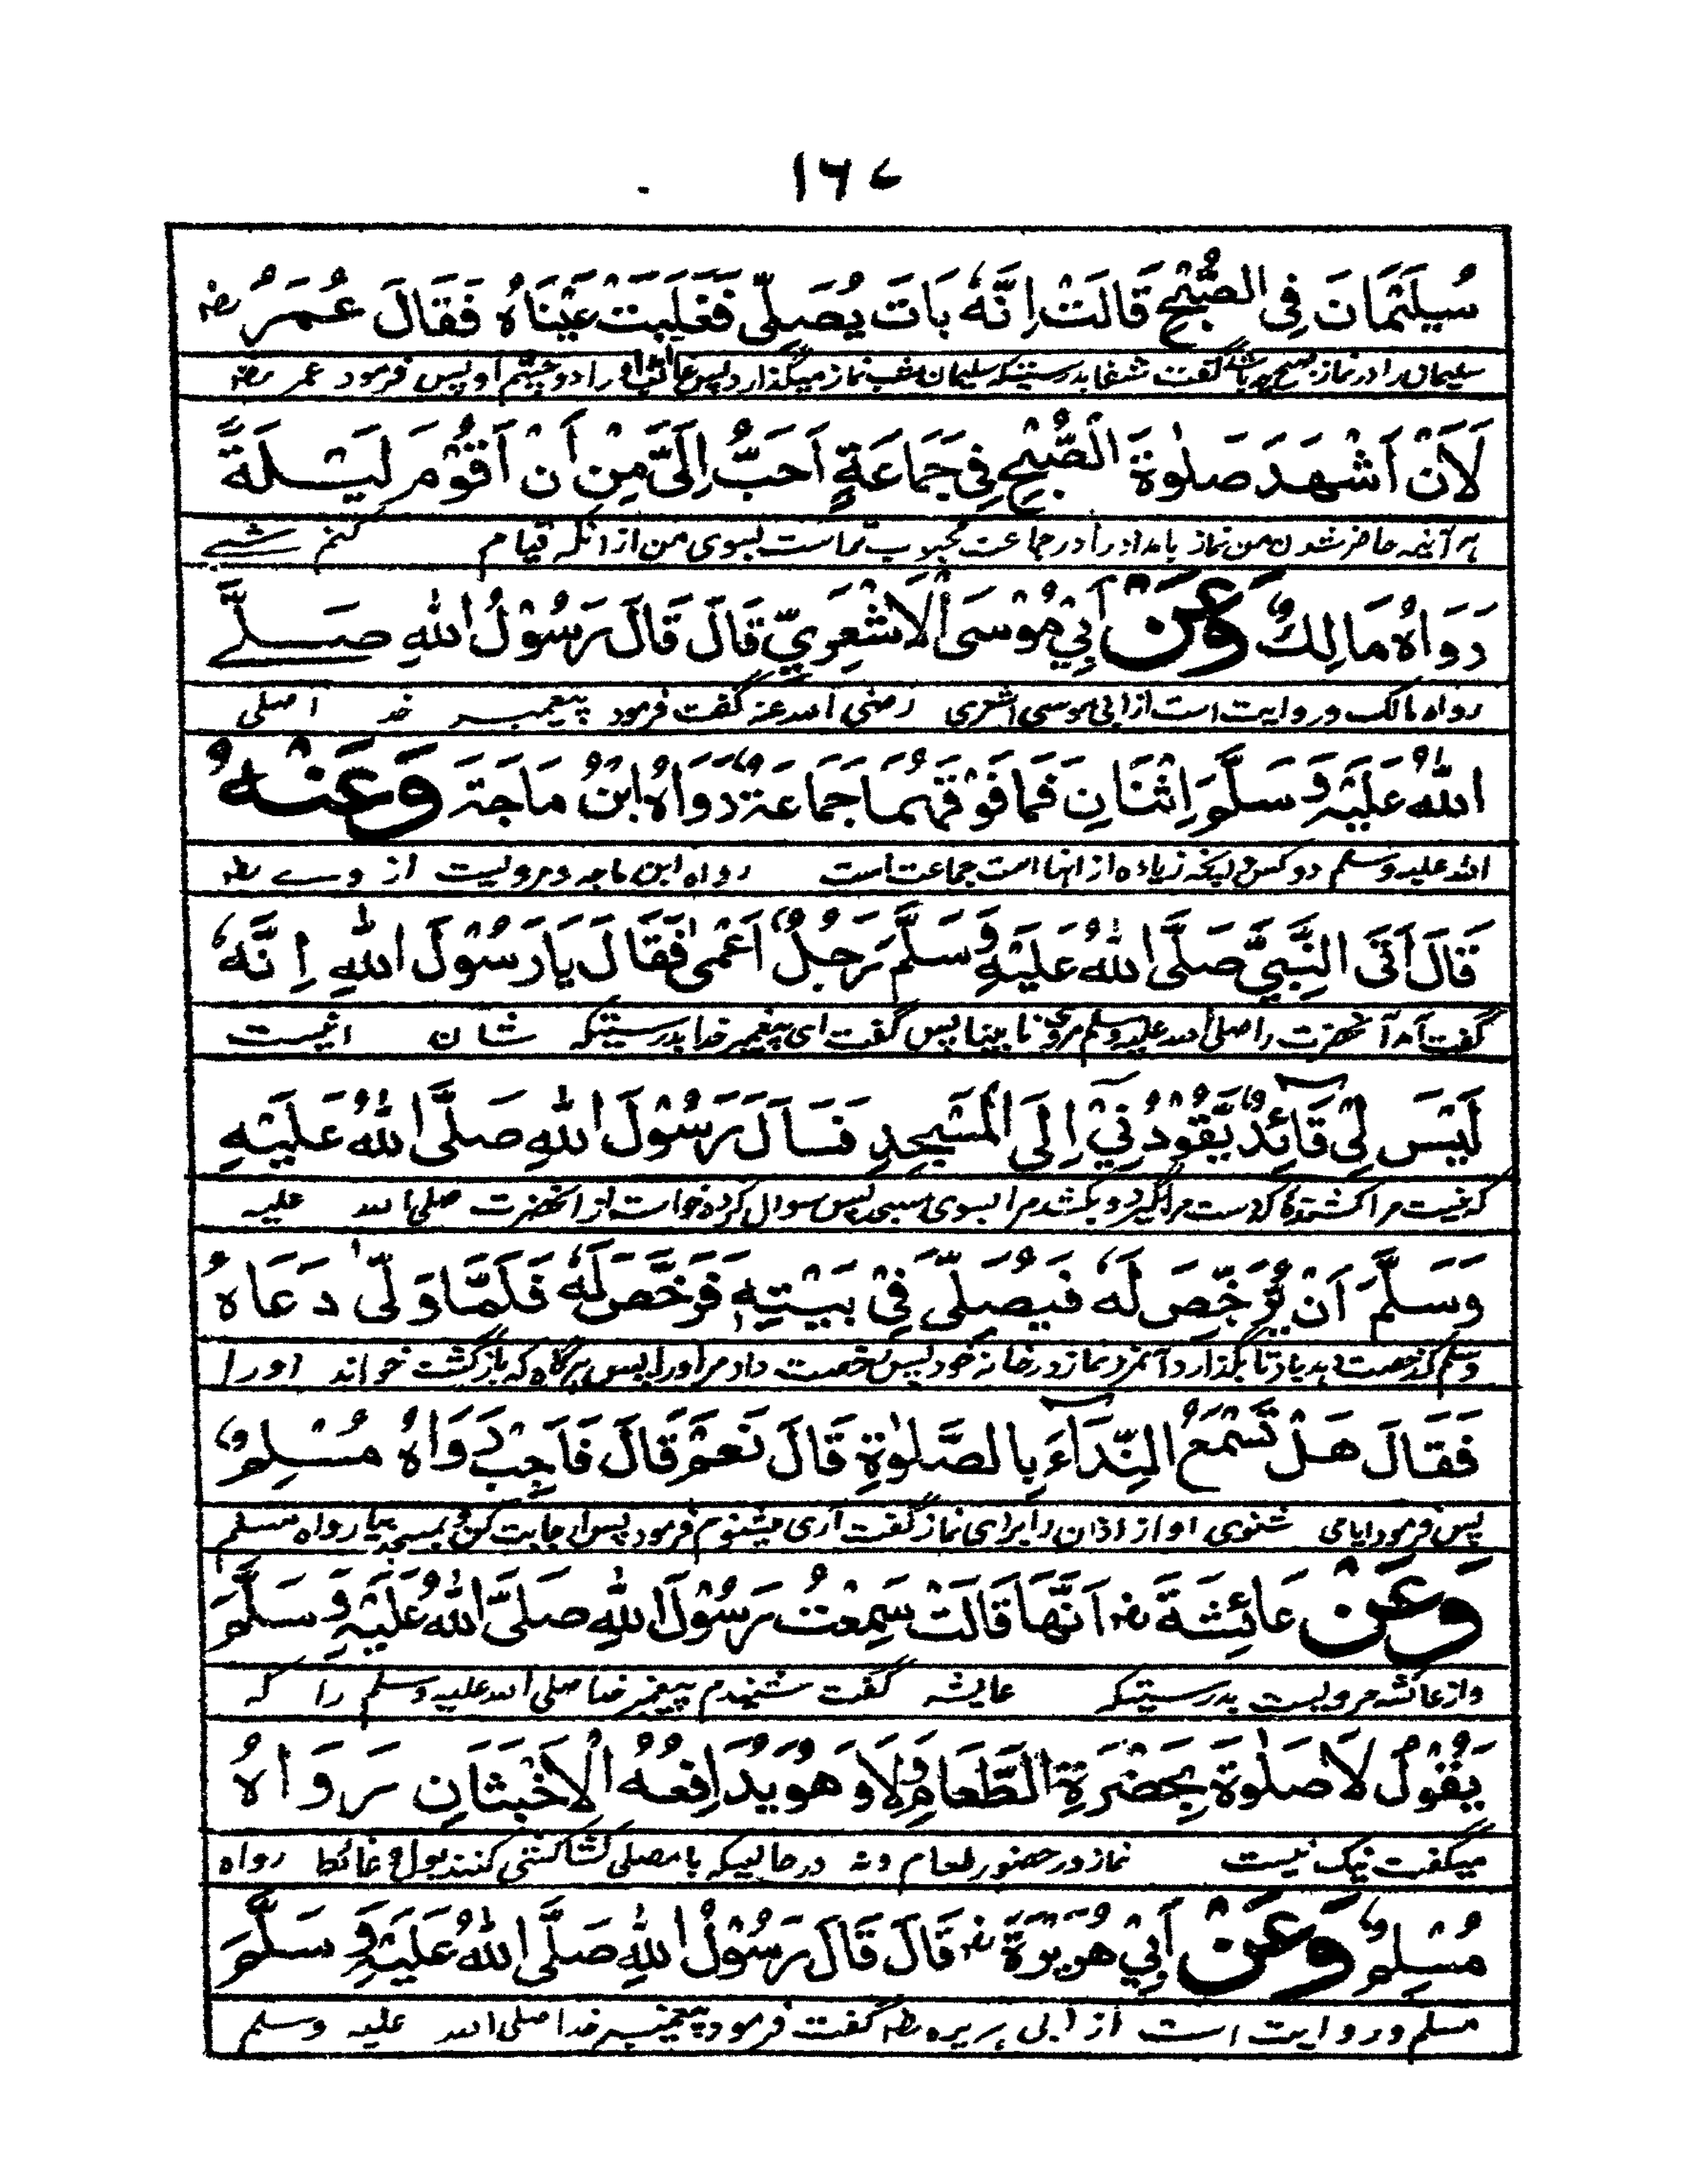 ١٦٧
سُلَيْمَانَ فِي الصُّبْحِ قَالَتْ اِنَّهٗ بَاتَ يُصَلِّى فَغَلَبَتْ عَيْنَاهُ فَقَالَ عُمَرُ رضہ
سلیمان را در نماز صبح گفت شفا بدرستیکه سلیمان شب نماز میگذارد پس او را دو چشم او پس فرمود عمر رضہ
لَاَنْ اَشْهَدَ صَلٰوةَ الصُّبْحِ فِي جَمَاعَةٍ اَحَبُّ اِلَيَّ مِنْ اَنْ اَقُوْمَ لَيْلَةً
هر آئینه حاضر شدن من نماز بامداد را در جماعت محبوب تر است بسوی من از انکه قیام کنم شبے
رَوَاهُ مَالِكٌ وَعَنْ اَبِيْ مُوْسَى الْاَشْعَرِيِّ قَالَ قَالَ رَسُوْلُ اللّٰهِ صَلَّے
رواه مالک و روایت است از ابی موسی اشعری رضی الله عنه گفت فرمود پیغمبر خدا صلی
اللّٰهُ عَلَيْهِ وَسَلَّمَ اِثْنَانِ فَمَا فَوْقَهُمَا جَمَاعَةٌ رَوَاهُ ابْنُ مَاجَةَ وَعَنْهُ
الله علیه وسلم دو کس پس انچه زیاده از انها است جماعت است رواه ابن ماجه و مرویست از وے رضہ
قَالَ اَتَى النَّبِيَّ صَلَّى اللّٰهُ عَلَيْهِ وَسَلَّمَ رَجُلٌ اَعْمٰى فَقَالَ يَا رَسُوْلَ اللّٰهِ اِنَّهٗ
گفت آمد آنحضرت را صلی الله علیه وسلم مردی نابینا پس گفت ای پیغمبر خدا بدرستیکه شان اینست
لَيْسَ لِيْ قَائِدٌ يَّقُوْدُنِيْ اِلَى الْمَسْجِدِ فَسَاَلَ رَسُوْلَ اللّٰهِ صَلَّى اللّٰهُ عَلَيْهِ
که نیست مرا کشنده که دست مرا گیرد و بکشد مرا بسوی مسجد پس سوال کرد خواست از انحضرت صلی الله علیه
وَسَلَّمَ اَنْ يُّرَخِّصَ لَهٗ فَيُصَلِّيَ فِيْ بَيْتِهٖ فَرَخَّصَ لَهٗ فَلَمَّا وَلّٰى دَعَاهُ
وسلم که رخصت دهد تا بگذارد آنمرد نماز در خانه خود پس رخصت داد مر او را پس هرگاه که بازگشت خواند او را
فَقَالَ هَلْ تَسْمَعُ النِّدَاءَ بِالصَّلٰوةِ قَالَ نَعَمْ قَالَ فَاَجِبْ رَوَاهُ مُسْلِمٌ
پس فرمود ایا می شنوی اواز اذان را برای نماز گفت آری میشنوم فرمود پس اجابت کن و بمسجد بیا رواه مسلم
وَعَنْ عَائِشَةَ رضہ اَنَّهَا قَالَتْ سَمِعْتُ رَسُوْلَ اللّٰهِ صَلَّى اللّٰهُ عَلَيْهِ وَسَلَّمَ
و از عائشه مرویست بدرستیکه عایشه گفت شنیدم پیغمبر خدا صلی الله علیه وسلم را که
يَقُوْلُ لَا صَلٰوةَ بِحَضْرَةِ الطَّعَامِ وَلَا وَهُوَ يُدَافِعُهُ الْاَخْبَثَانِ رَوَاهُ
میگفت نیک نیست نماز در حضور طعام و نه در حالیکه با مصلی کشاکشی کنند بول و غائط رواه
مُسْلِمٌ وَعَنْ اَبِيْ هُرَيْرَةَ رضہ قَالَ قَالَ رَسُوْلُ اللّٰهِ صَلَّى اللّٰهُ عَلَيْهِ وَسَلَّمَ
مسلم و روایت است از ابی هریره رضہ گفت فرمود پیغمبر خدا صلی الله علیه وسلم